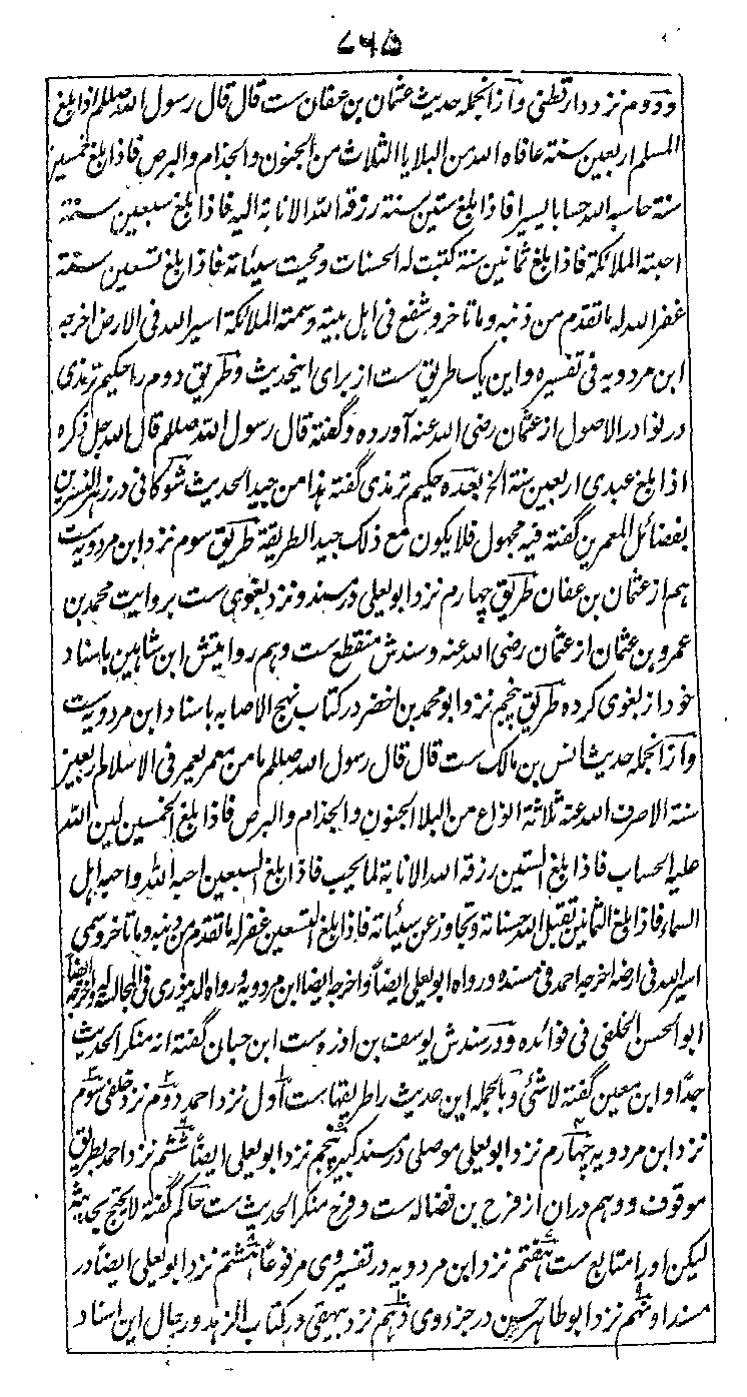 ۷۶۵
و دوم نزد دارقطنی و از انجمله حدیث عثمان بن عفان ست قال قال رسول الله صللم اذا بلغ
المسلم اربعین سنة عافاه الله من البلایا الثلاث من الجنون والجذام والبرص فاذا بلغ خمسین
سنة حاسبه الله حسابا یسیرا فاذا بلغ ستین سنة رزقه الله الانابة الیه فاذا بلغ سبعین سنة
احبته الملائکة فاذا بلغ ثمانین سنة کتبت له الحسنات ومحیت سیئاته فاذا بلغ تسعین سنة
غفر الله له ما تقدم من ذنبه وما تاخر وشفع فی اهل بیته وسمته الملائکة اسیر الله فی الارض اخرجه
ابن مردویه فی تفسیره و این یک طریق ست از برای اینحدیث و طریق دوم را حکیم ترمذی
در نوادر الاصول از عثمان رضی الله عنه آورده و گفته قال رسول الله صللم قال الله جل ذکره
اذا بلغ عبدی اربعین سنة الخ بعده حکیم ترمذی گفته هذا من جید الحدیث شوکانی در زهر النسرین
بفضائل المعمرین گفته فیه مجهول فلا یکون مع ذلک جید الطریقة طریق سوم نزد ابن مردویه ست
هم از عثمان بن عفان طریق چهارم نزد ابو یعلی در مسند و نزد بغوی ست بروایت محمد بن
عمرو بن عثمان از عثمان رضی الله عنه و سندش منقطع ست و هم روایتش ابن شاهین باسناد
خود از بغوی کرده طریق پنجم نزد ابو محمد بن اخضر در کتاب نهج الاصابه باسناد ابن مردویه ست
و از انجمله حدیث انس بن مالک ست قال قال رسول الله صللم ما من معمر یعمر فی الاسلام اربعین
سنة الا صرف الله عنه ثلاثة انواع من البلا الجنون والجذام والبرص فاذا بلغ الخمسین لین الله
علیه الحساب فاذا بلغ الستین رزقه الله الانابة لما یحب فاذا بلغ السبعین احبه الله واحبه اهل
السماء فاذا بلغ الثمانین تقبل الله حسناته وتجاوز عن سیئاته فاذا بلغ التسعین غفر له ما تقدم من ذنبه وما تاخر وسمی
اسیر الله فی ارضه اخرجه احمد فی مسنده ورواه ابو یعلی ایضا واخرجه ایضا ابن مردویه ورواه الدینوری فی المجالسة واخرجه ایضا
ابو الحسن الخلعی فی فوائده و در سندش یوسف بن ابی ذره ست ابن حبان گفته انه منکر الحدیث
جدا و ابن معین گفته لاشئ و بالجمله این حدیث را طریقهاست اول نزد احمد دوم نزد خلعی سوم
نزد ابن مردویه چهارم نزد ابو یعلی موصلی در مسند کبیر پنجم نزد ابو یعلی ایضا ششم نزد احمد بطریق
موقوف و وهم دران از فرح بن فضاله ست و فرح منکر الحدیث ست حاکم گفته لا یحتج بحدیثه
لیکن او را متابع ست هفتم نزد ابن مردویه در تفسیر وی مرفوعا هشتم نزد ابو یعلی ایضا در
مسند او نهم نزد ابو طاهر حسین در جزء وی دهم نزد بیهقی در کتاب الزهد و رجال این اسناد